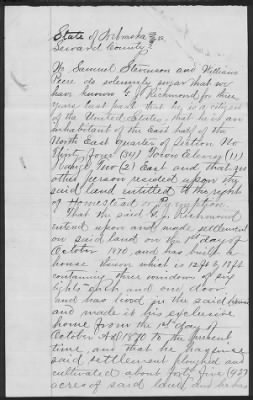 State of Nebraska } ss.
Seward County
We Samuel Stevenson and William
Peere do solemnly swear that we
have known G. J. Richmond for three
years last past that he is a citizen
of the United States that he is an
inhabitant of the East half of the
North East quarter of Section No
Thirty four (34) Town Eleven (11)
Range Two (2) East and that no
other person resided upon the
said land entitled to the right
of Homestead or Preemption
That the said G. J. Richmond
entered upon and made settlement
on said land on the 1st day of
October 1870, and has built a
house thereon which is 12 ft by 19 ft
containing three windows of six
lights each, and one door
and has lived in the said house
and made it his exclusive
home from the 1st day of
October AD 1870 to the present
time, and that he has since
said settlement ploughed and
cultivated about forty five (45)
acres of said land, and he has